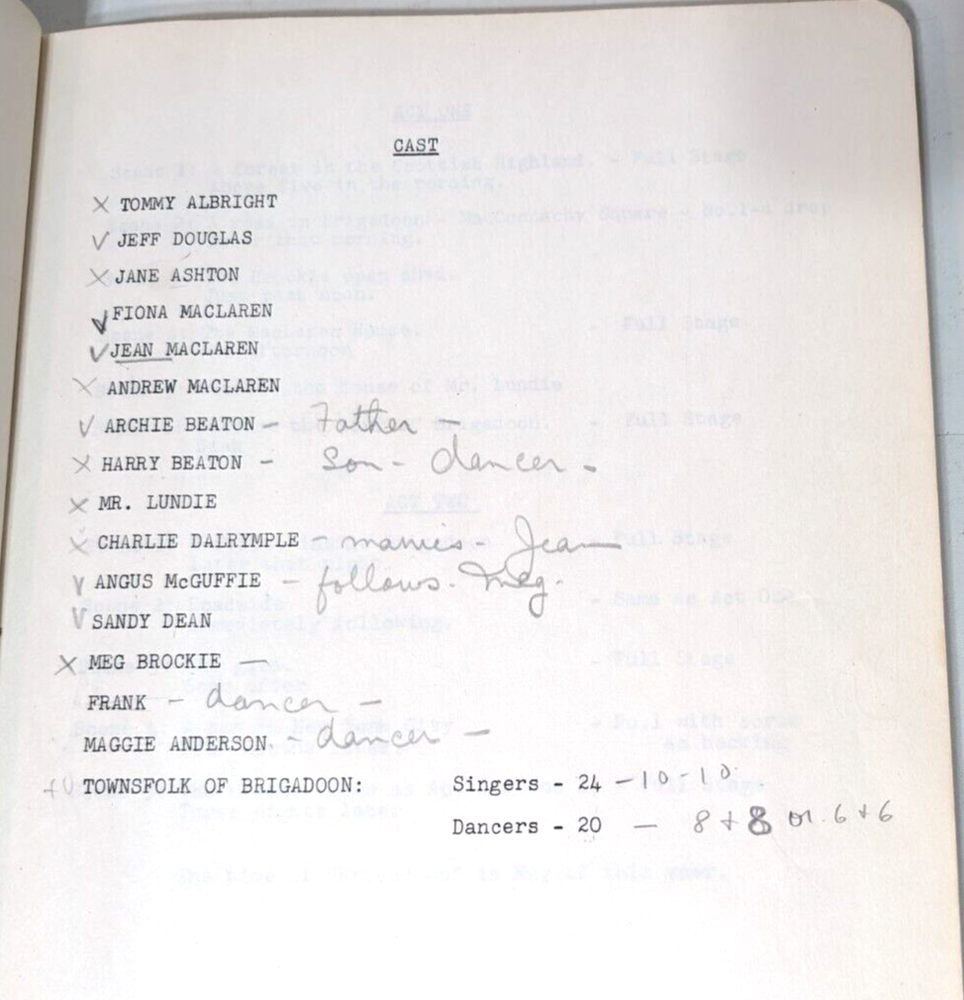 CAST
× TOMMY ALBRIGHT
✓ JEFF DOUGLAS
× JANE ASHTON
✓ FIONA MACLAREN
✓ JEAN MACLAREN
× ANDREW MACLAREN
✓ ARCHIE BEATON - Father -
× HARRY BEATON - Son - dancer -
× MR. LUNDIE
× CHARLIE DALRYMPLE - marries - Jean
✓ ANGUS McGUFFIE - follows - Meg.
✓ SANDY DEAN
× MEG BROCKIE -
FRANK - dancer -
MAGGIE ANDERSON. - dancer -
TOWNSFOLK OF BRIGADOON: Singers - 24 - 10 - 10
Dancers - 20 - 8 + 8 or 6 + 6